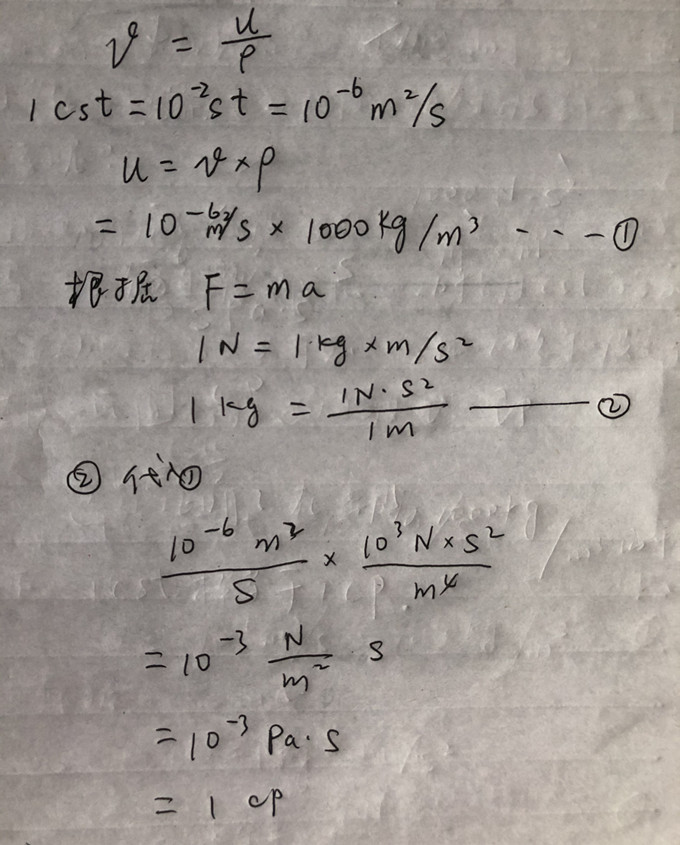 ν = u/ρ
1 cst = 10⁻²st = 10⁻⁶ m²/s
u = ν × ρ
= 10⁻⁶m²/s × 1000 kg/m³ - - - ①
根据 F = m a
1N = 1·kg × m/s²
1 kg = 1N·s²/1m —— ②
② 代入①
10⁻⁶ m²/S × 10³ N×s²/m⁴
= 10⁻³ N/m² s
= 10⁻³ Pa·s
= 1 cp